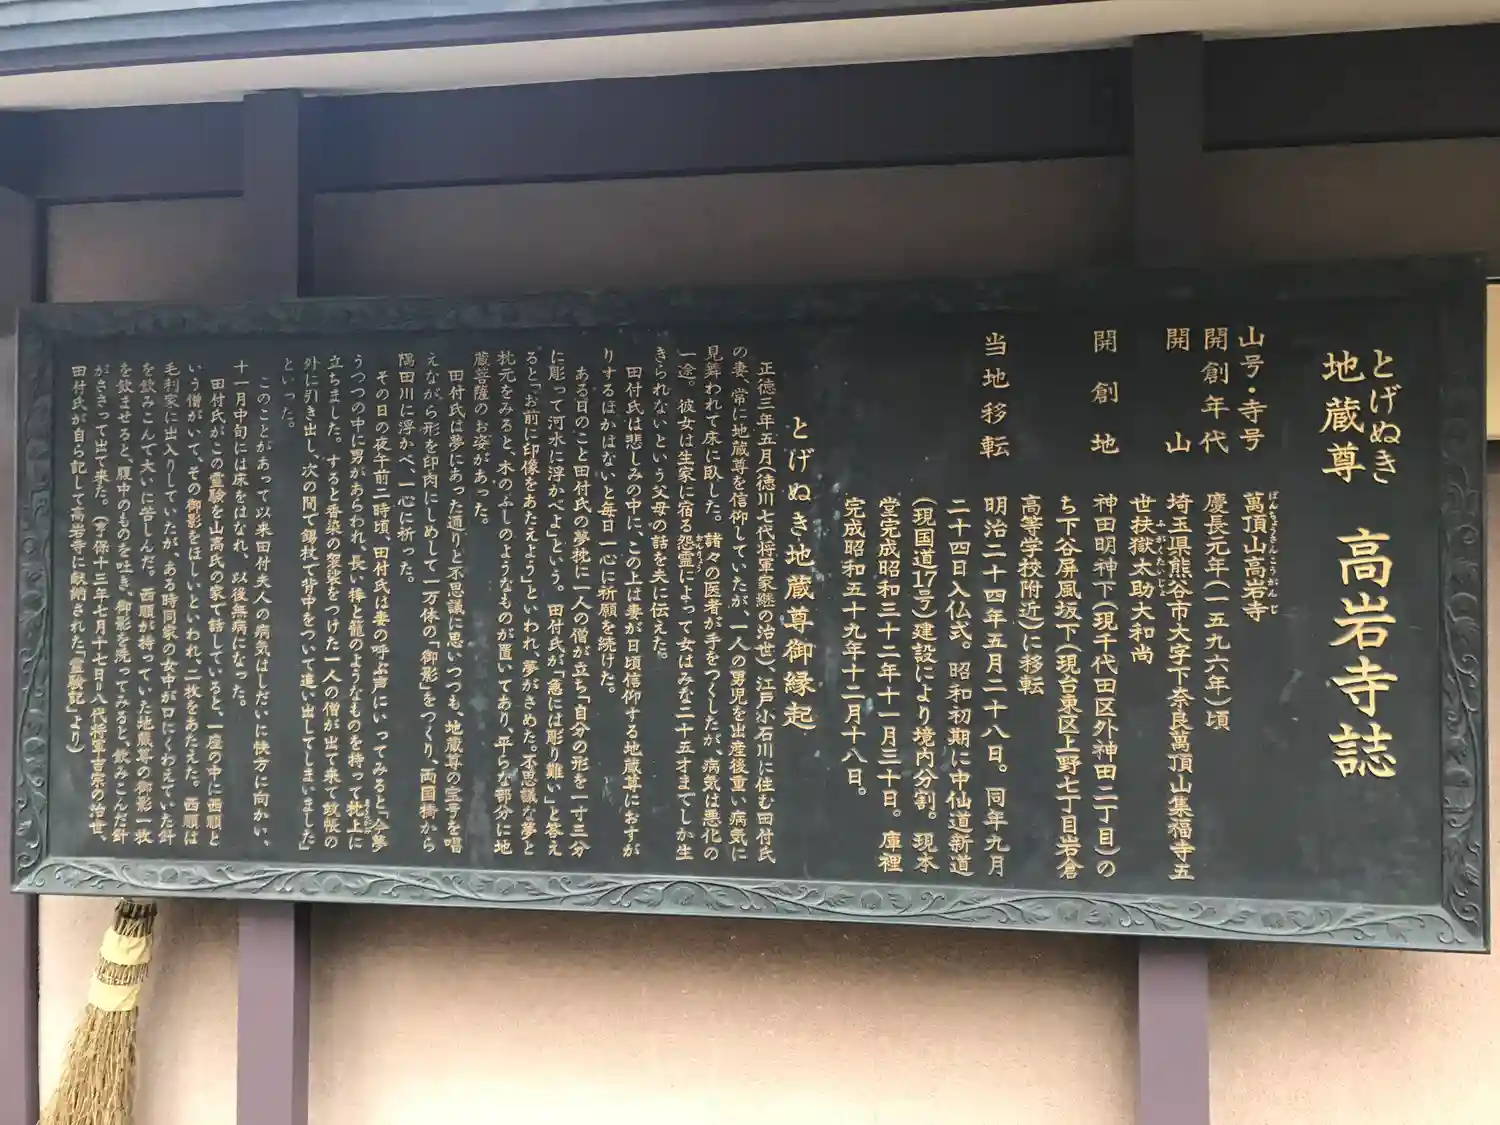 とげぬき
地蔵尊　高岩寺誌
山号・寺号　萬頂山高岩寺
開創年代　慶長元年(一五九六年)頃
開山　埼玉県熊谷市大字下奈良萬頂山集福寺五
世扶嶽太助大和尚
開創地　神田明神下(現千代田区外神田二丁目)の
ち下谷屏風坂下(現台東区上野七丁目岩倉
高等学校附近)に移転
当地移転　明治二十四年五月二十八日。同年九月
二十四日入仏式。昭和初期に中仙道新道
(現国道17号)建設により境内分割。現本
堂完成昭和三十二年十一月三十日。庫裡
完成昭和五十九年十二月十八日。
とげぬき地蔵尊御縁起
正徳三年五月(徳川七代将軍家継の治世)、江戸小石川に住む田付氏
の妻、常に地蔵尊を信仰していたが、一人の男児を出産後重い病気に
見舞われて床に臥した。諸々の医者が手をつくしたが、病気は悪化の
一途。彼女は生家に宿る怨霊によって女はみな二十五才までしか生
きられないという父母の話を夫に伝えた。
田付氏は悲しみの中に、この上は妻が日頃信仰する地蔵尊におすが
りするほかはないと毎日一心に祈願を続けた。
ある日のこと田付氏の夢枕に一人の僧が立ち「自分の形を一寸三分
に彫って河水に浮かべよ」という。田付氏が「急には彫り難い」と答え
ると「お前に印像をあたえよう」といわれ、夢がさめた。不思議な夢と
枕元をみると、木のふしのようなものが置いてあり、平らな部分に地
蔵菩薩のお姿があった。
田付氏は夢にあった通りと不思議に思いつつも、地蔵尊の宝号を唱
えながら形を印肉にしめして一万体の「御影」をつくり、両国橋から
隅田川に浮かべ、一心に祈った。
その日の夜午前二時頃、田付氏は妻の呼ぶ声にいってみると、「今夢
うつつの中に男があらわれ、長い棒と籠のようなものを持って枕上に
立ちました。すると香染の袈裟をつけた一人の僧が出て来て蚊帳の
外に引き出し、次の間で錫杖で背中をついて追い出してしまいました」
といった。
このことがあって以来田付夫人の病気はしだいに快方に向かい、
十一月中旬には床をはなれ、以後無病になった。
田付氏がこの霊験を山高氏の家で話していると、一座の中に西順と
いう僧がいて、その御影をほしいといわれ、二枚をあたえた。西順は
毛利家に出入りしていたが、ある時同家の女中が口にくわえていた針
を飲みこんで大いに苦しんだ。西順が持っていた地蔵尊の御影一枚
を飲ませると、腹中のものを吐き、御影を洗ってみると、飲みこんだ針
がささって出て来た。(享保十三年七月十七日、八代将軍吉宗の治世、
田付氏が自ら記して高岩寺に献納された「霊験記」より)